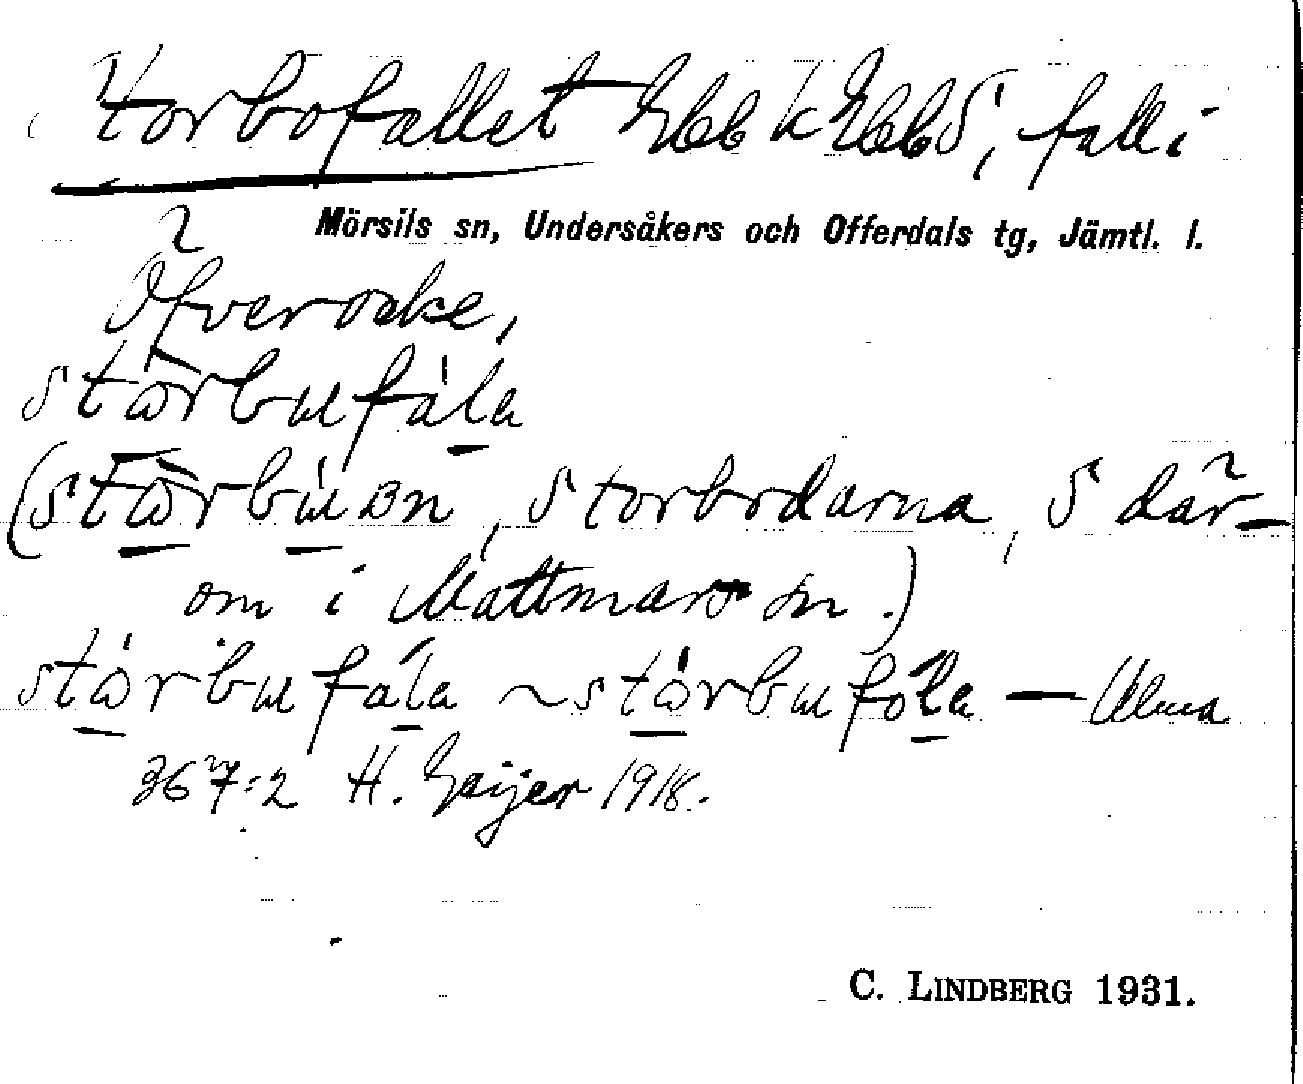 Storbofallet Ebb k Ebb S, fall i
Mörsils sn, Undersåkers och Offerdals tg, Jämtl. l.
Öfverocke,
storbufála
(storbúan, Storbodarna, S där-
om i Mattmars sn.)
stórbufála ~ stórbufóla — Ulma
367:2 H. Geijer 1918.
C. LINDBERG 1931.